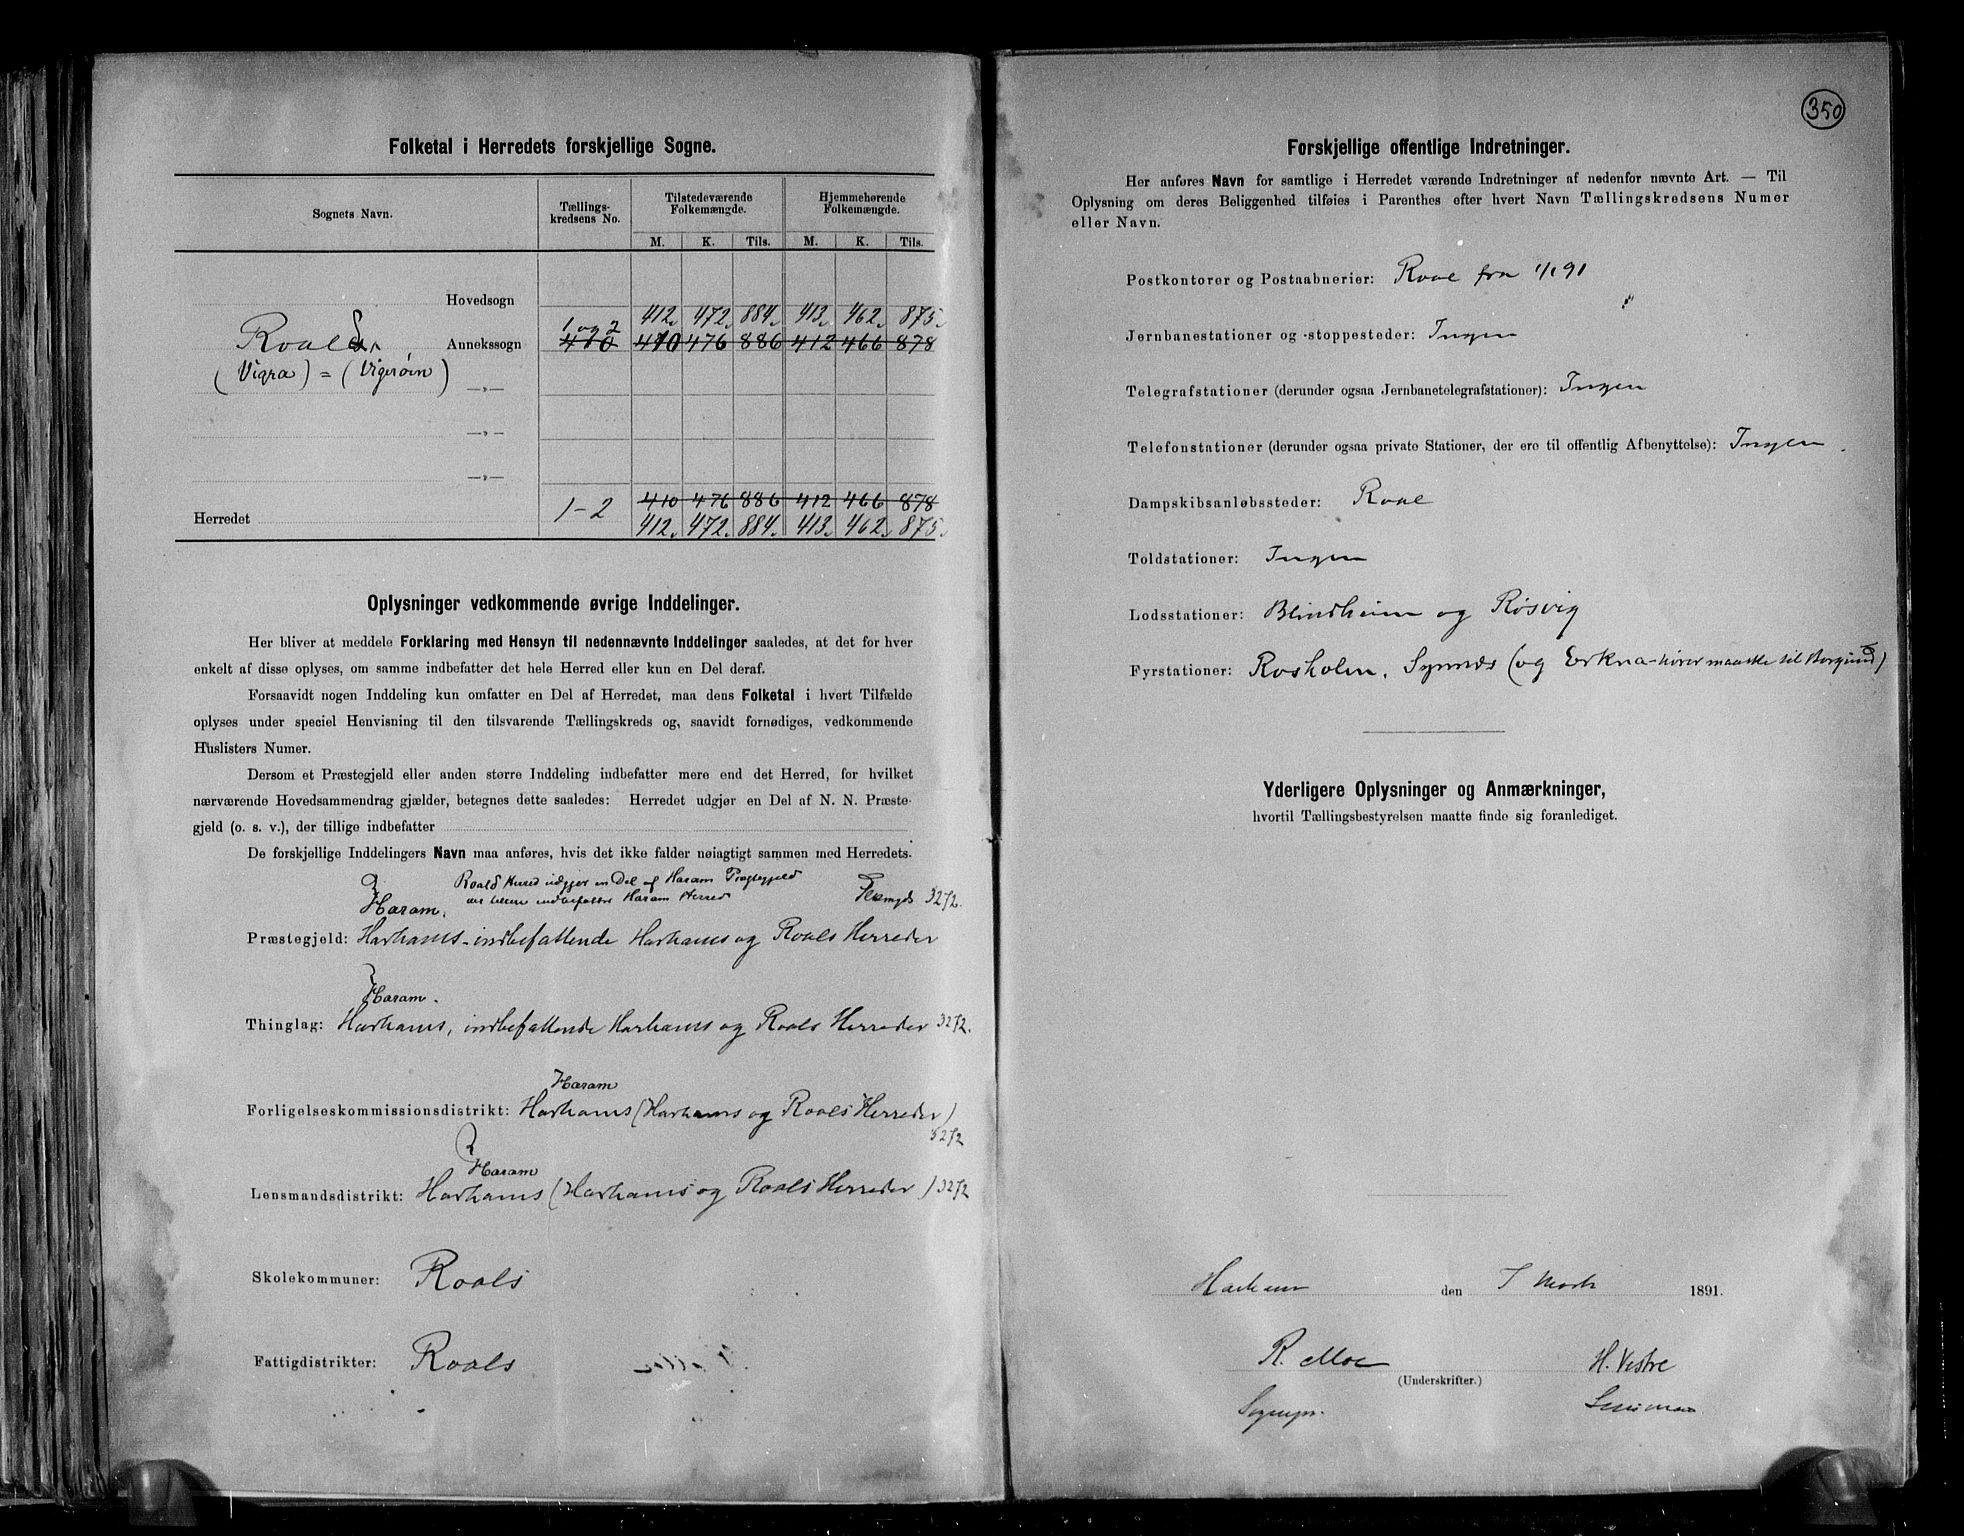 Folketal i Herredets forskjellige Sogne.
Sognets Navn. Tællings-kredsens No. Tilstedeværende Folkemængde. Hjemmehørende Folkemængde.
M. K. Tils. M. K. Tils.
Hovedsogn
412. 472. 884. 413. 462. 875.
Roald Annekssogn 1 og 2 410 476 886 412 466 878
(Vigra) = (Vigerøen) —„—
—„—
—„—
410 476 886 412 466 878
Herredet 1-2 412. 472. 884. 413. 462. 875.
Oplysninger vedkommende øvrige Inddelinger.
Her bliver at meddele Forklaring med Hensyn til nedennævnte Inddelinger saaledes, at det for hver
enkelt af disse oplyses, om samme indbefatter det hele Herred eller kun en Del deraf.
Forsaavidt nogen Inddeling kun omfatter en Del af Herredet, maa dens Folketal i hvert Tilfælde
oplyses under speciel Henvisning til den tilsvarende Tællingskreds og, saavidt fornødiges, vedkommende
Huslisters Numer.
Dersom et Præstegjeld eller anden større Inddeling indbefatter mere end det Herred, for hvilket
nærværende Hovedsammendrag gjælder, betegnes dette saaledes: Herredet udgjør en Del af N. N. Præste-
gjeld (o. s. v.), der tillige indbefatter
De forskjellige Inddelingers Navn maa anføres, hvis det ikke falder nøiagtigt sammen med Herredets.
Roald Herred udgjør en Del af Haram Præstegjeld
Haram. der tillige indbefatter Haram Herred 3272.
Præstegjeld: Harhams-indbefattende Harhams og Roals Herreder
Haram.
Thinglag: Harhams, indbefattende Harhams og Roals Herreder 3272.
Haram
Forligelseskommissionsdistrikt: Harhams (Harhams og Roals Herreder)
3272
Haram
Lensmandsdistrikt: Harhams (Harhams og Roals Herreder) 3272
Skolekommuner: Roals
Fattigdistrikter: Roals
350
Forskjellige offentlige Indretninger.
Her anføres Navn for samtlige i Herredet værende Indretninger af nedenfor nævnte Art. — Til
Oplysning om deres Beliggenhed tilføies i Parenthes efter hvert Navn Tællingskredsens Numer
eller Navn.
Postkontorer og Postaabnerier: Roal fra 1/1 91
Jernbanestationer og -stoppesteder: Ingen
Telegrafstationer (derunder ogsaa Jernbanetelegrafstationer): Ingen
Telefonstationer (derunder ogsaa private Stationer, der ere til offentlig Afbenyttelse): Ingen.
Dampskibsanløbssteder: Roal
Toldstationer: Ingen
Lodsstationer: Blindheim og Røsvig
Fyrstationer: Rosholm, Synnes (og Erkna-hører maaske til Borgund)
Yderligere Oplysninger og Anmærkninger,
hvortil Tællingsbestyrelsen maatte finde sig foranlediget.
Harham den 7 Marts 1891.
R. Moe H. Vestre
(Underskrifter.)
Sognepr. Lensmand